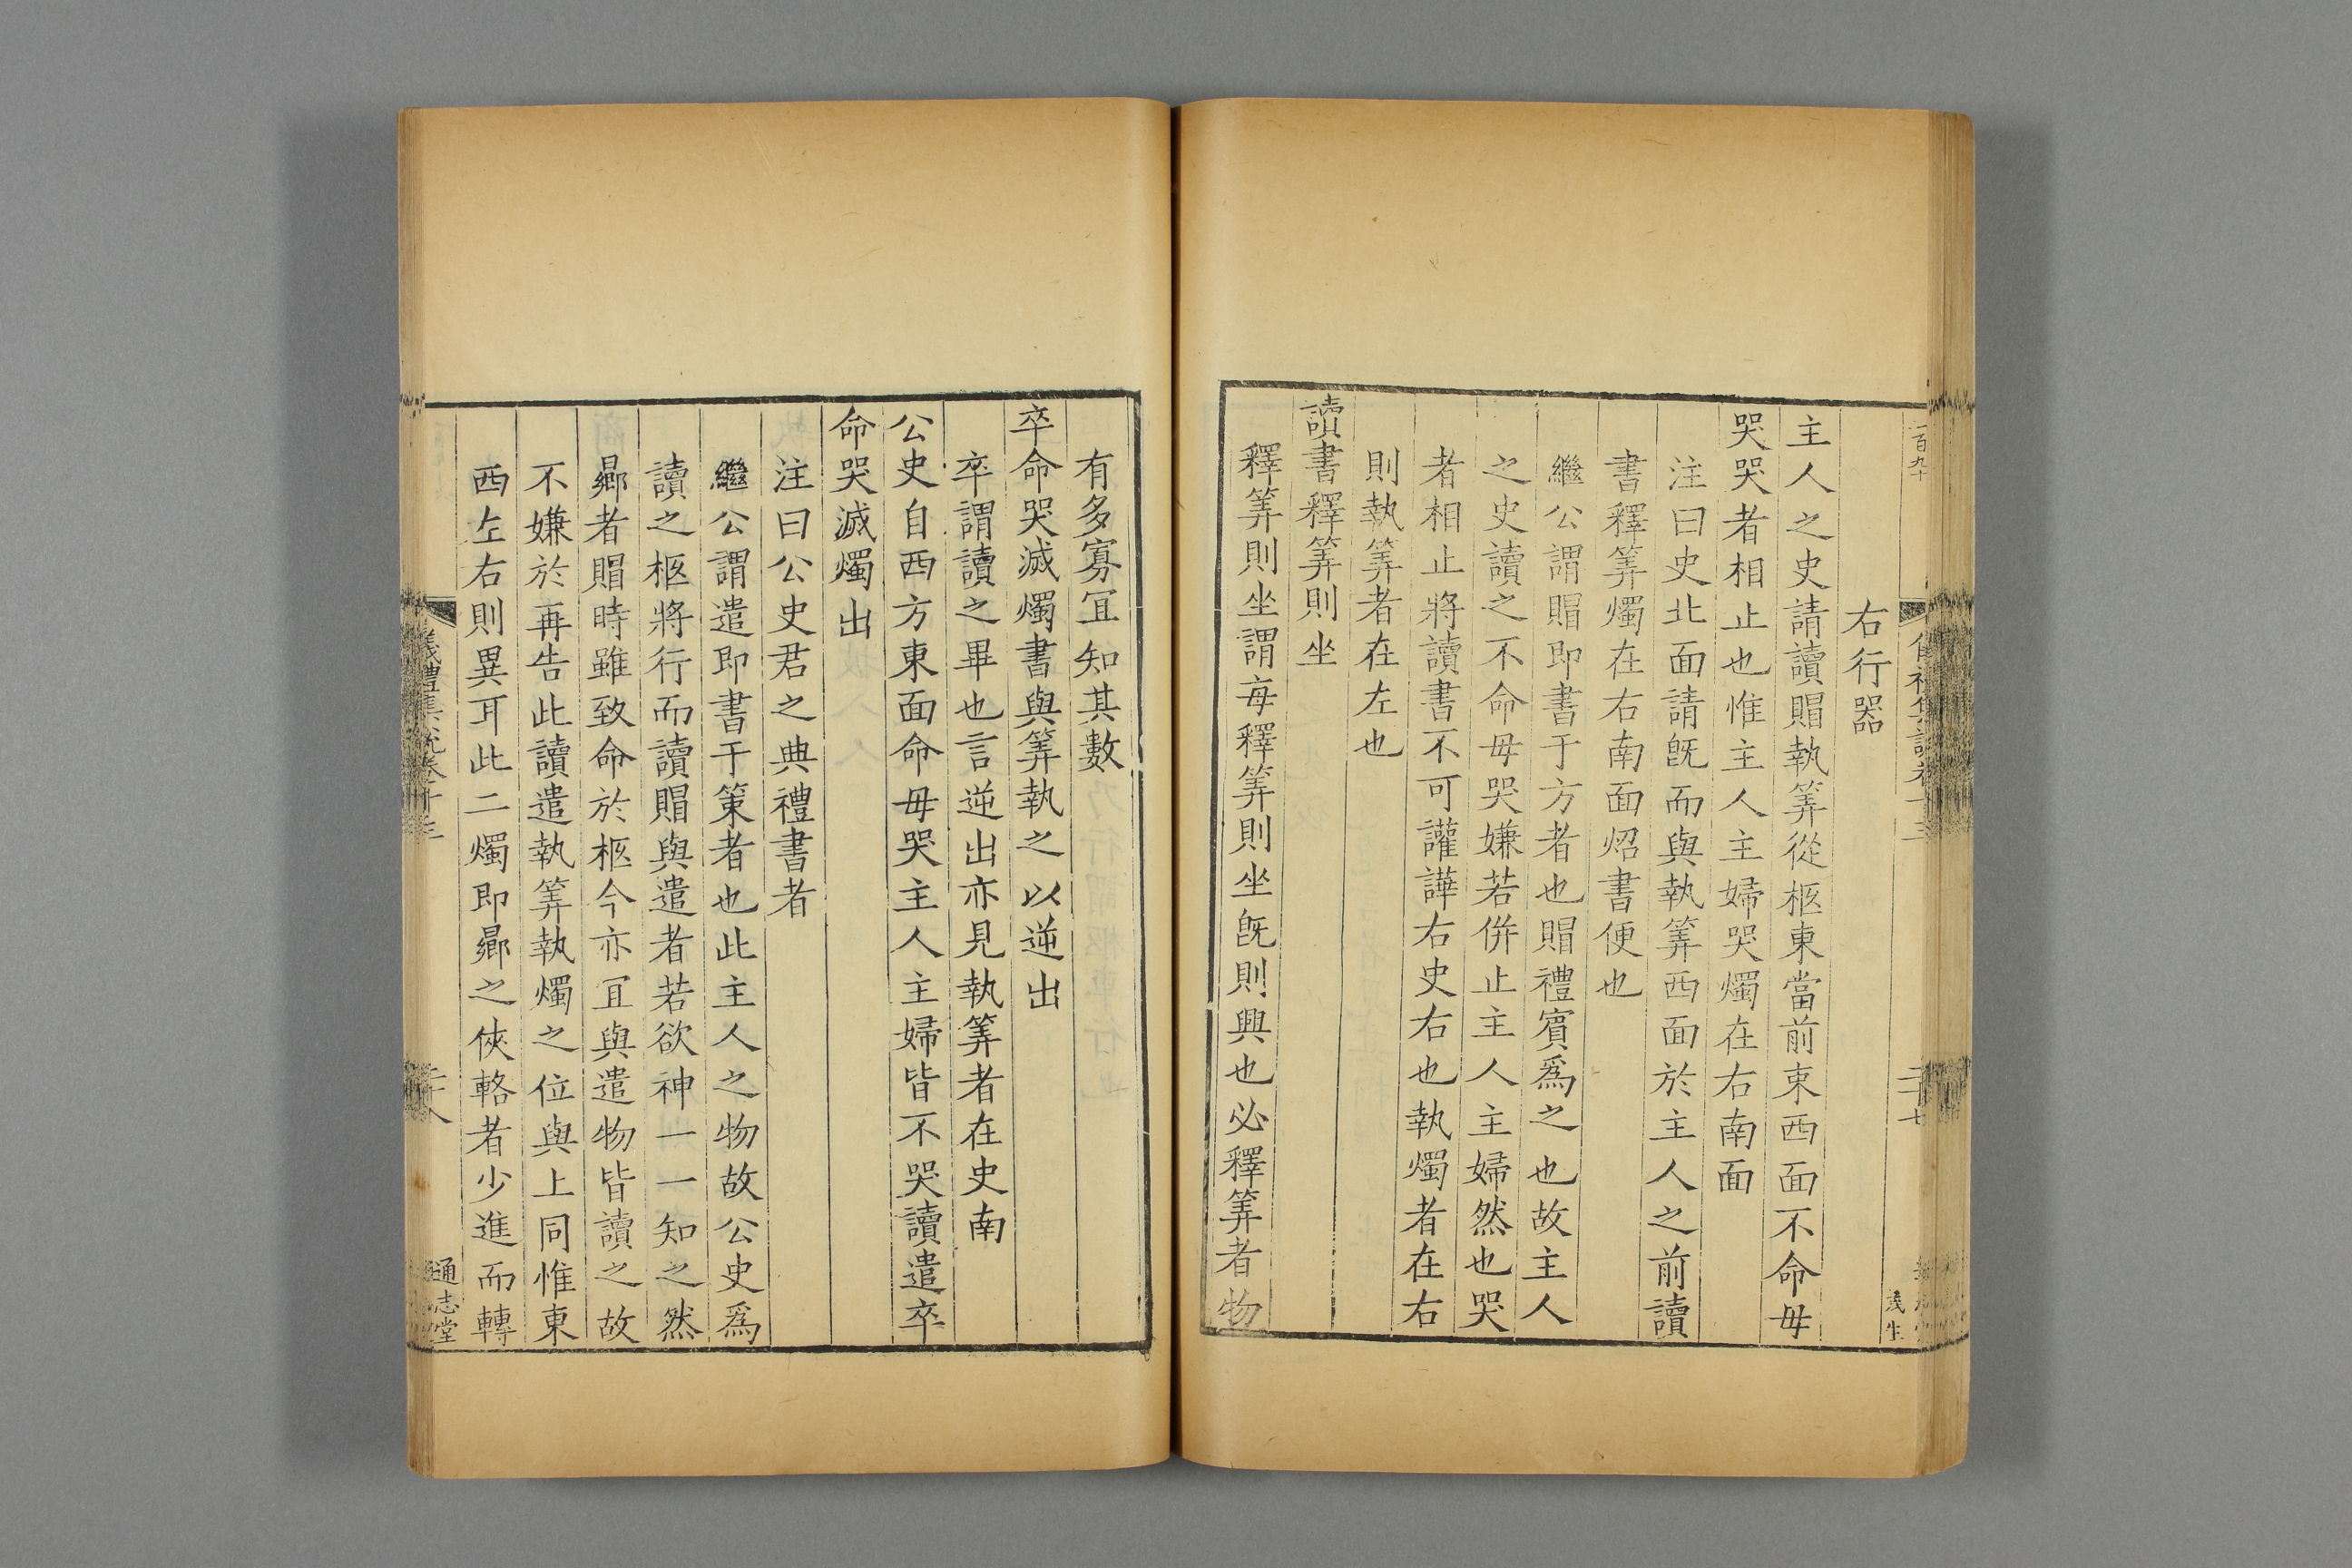 右行器
主人之史請讀賵執筭從柩東當前束西面不命毋
哭哭者相止也惟主人主婦哭燭在右南面
注曰史北面請旣而與執筭西面於主人之前讀
書釋筭燭在右南面炤書便也
繼公謂賵即書于方者也賵禮賓爲之也故主人
之史讀之不命毋哭嫌若併止主人主婦然也哭
者相止將讀書不可讙譁右史右也執燭者在右
則執筭者在左也
讀書釋筭則坐
釋筭則坐謂每釋筭則坐旣則興也必釋筭者物
有多寡冝知其數
卒命哭滅燭書與筭執之以逆出
卒謂讀之畢也言逆出亦見執筭者在史南
公史自西方東面命毋哭主人主婦皆不哭讀遣卒
命哭滅燭出
注曰公史君之典禮書者
繼公謂遣即書于策者也此主人之物故公史爲
讀之柩將行而讀賵與遣者若欲神一一知之然
曏者賵時雖致命於柩今亦冝與遣物皆讀之故
不嫌於再告此讀遣執筭執燭之位與上同惟東
西左右則異耳此二燭即曏之俠輅者少進而轉
儀禮集說卷十三
二十八
通志堂